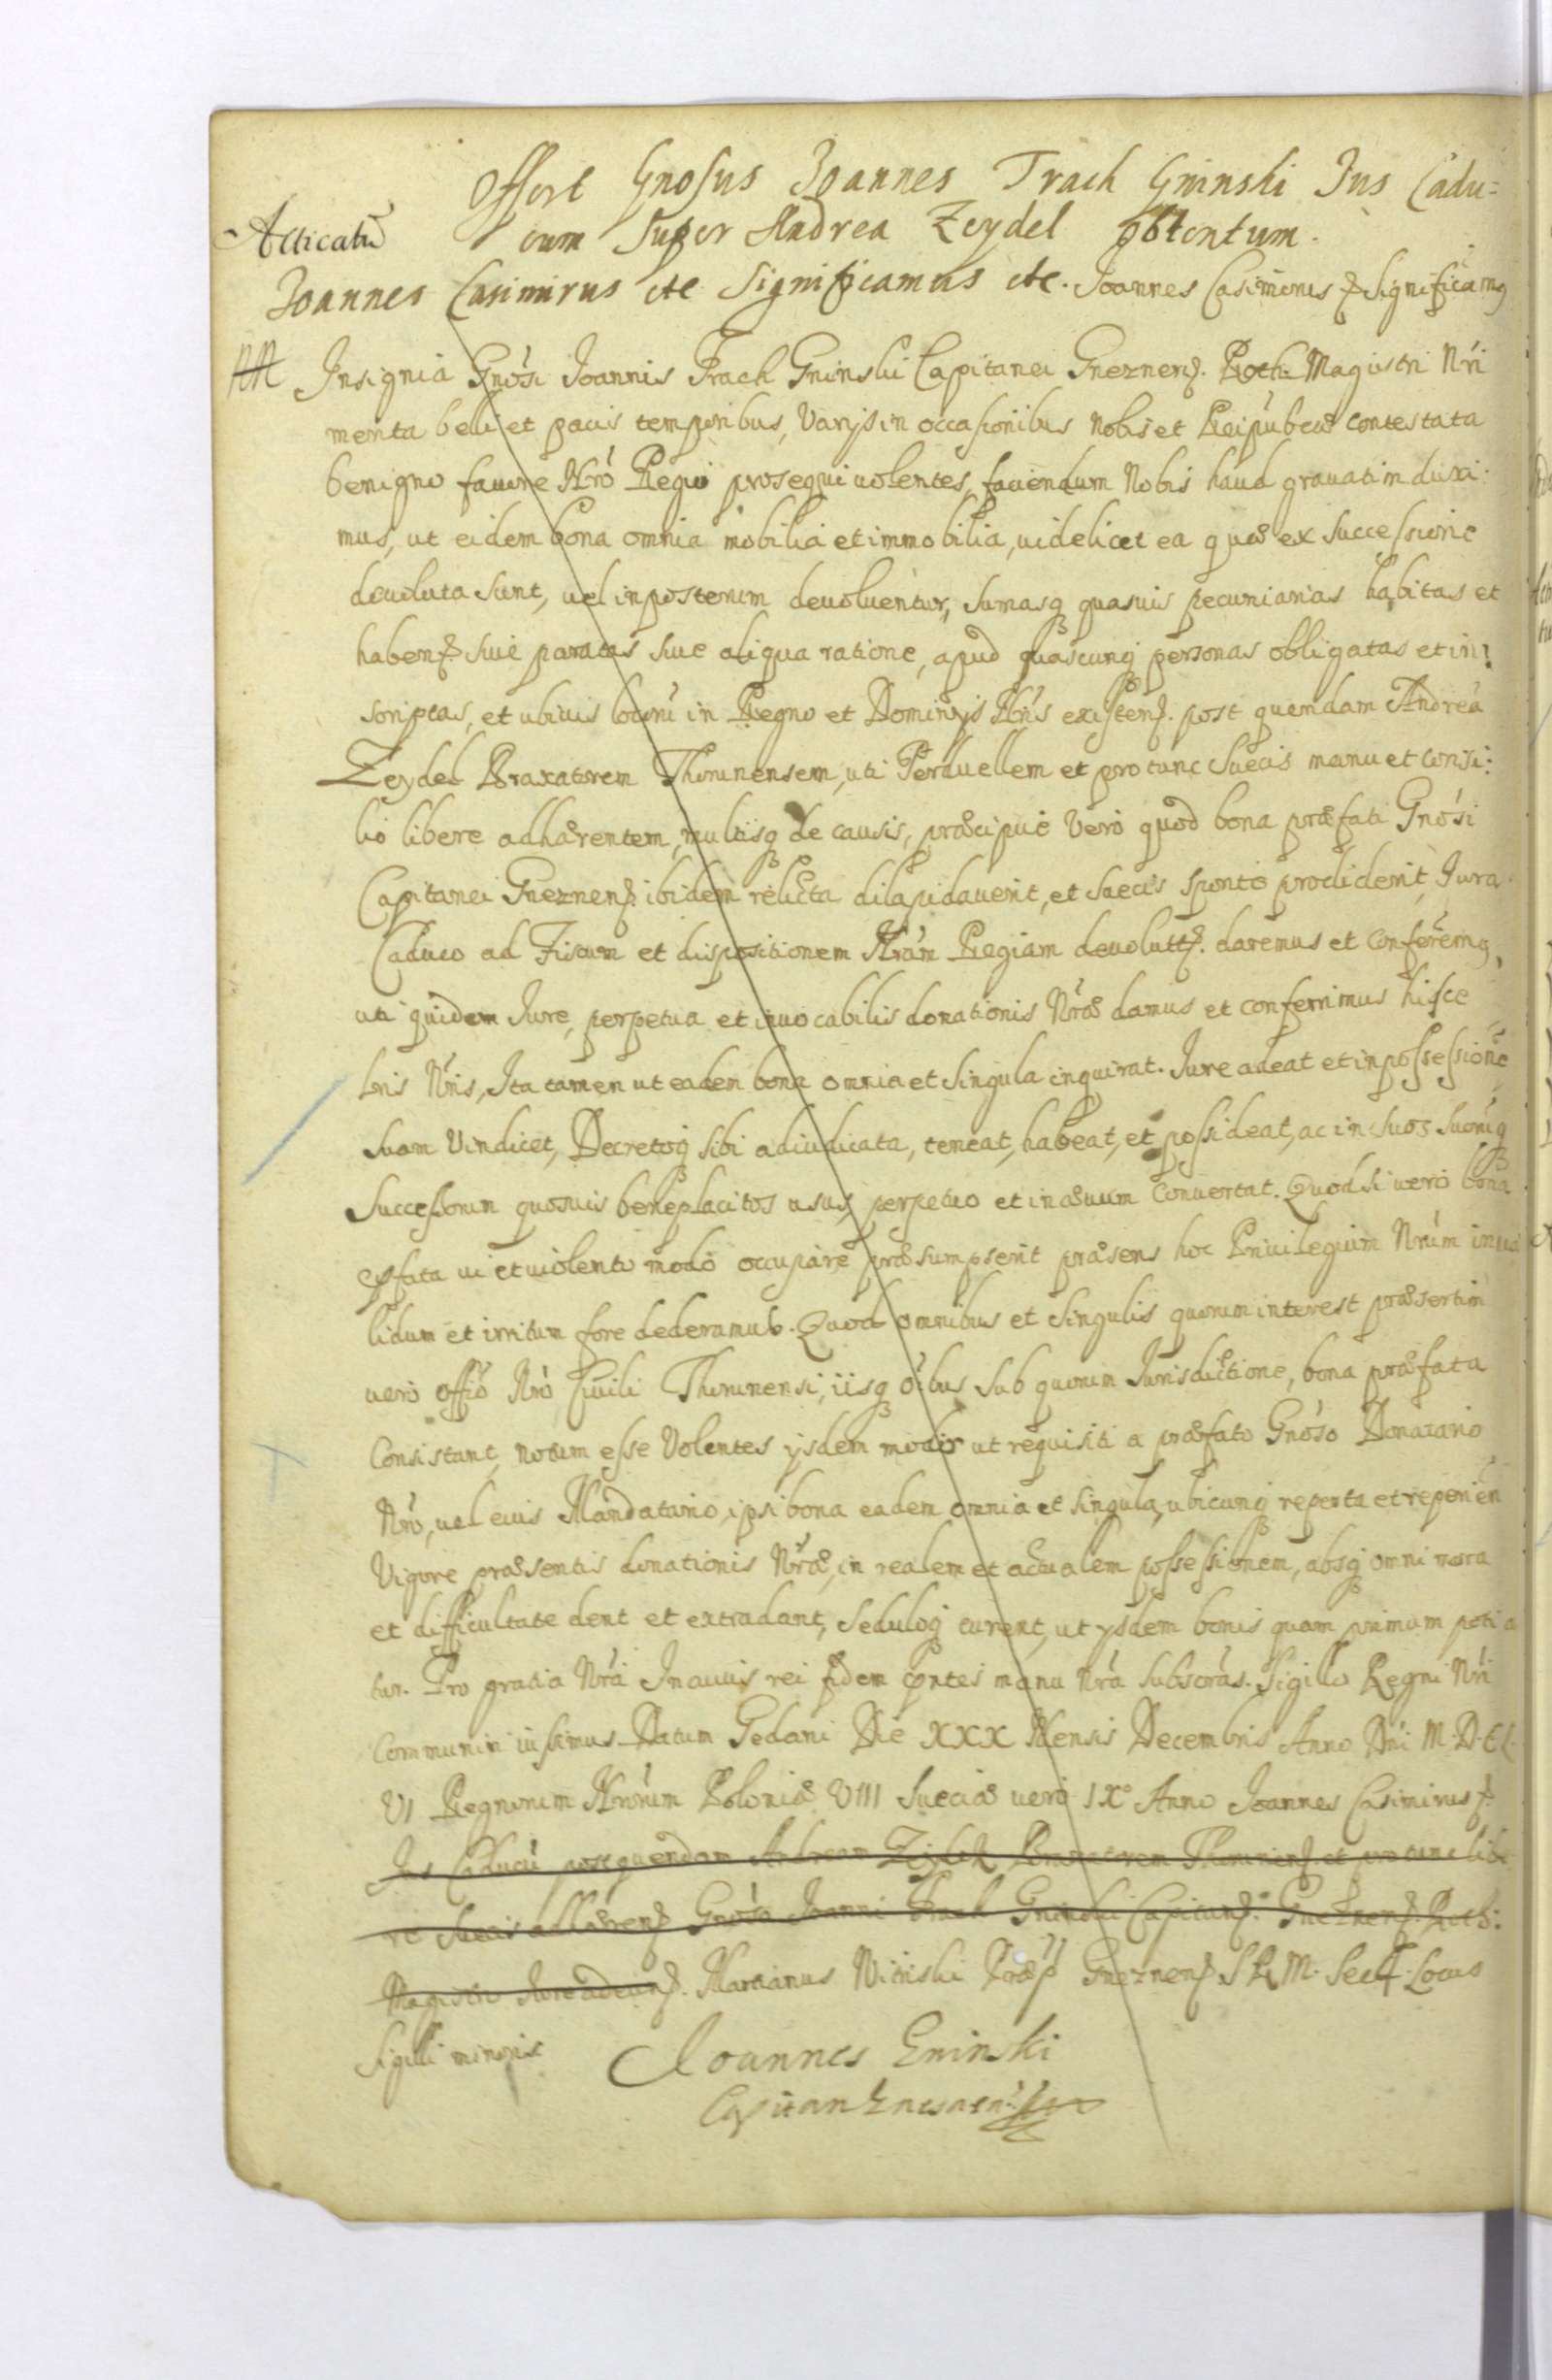 Offert Gnosus Joannes Trach Gninski Jus Cadu=
Acticatũ
cum super Andrea Zeydel obtentum.
Joannes Casimirus etc Significamus etc. Joannes Casimirus Significamq
Insignia Gnosi Joannis Trach Gninski Capitanei Gneznen. Roth. Magistri Nri
merita beli et pacis temporibus, varijs in occasionibus nobis et Reipubcæ contestata
benigno favore Nro Regio prosequi uolentes, fauendum Nobis haud grauatim duxi:
mus, ut eidem bona omnia mobilia et immobilia, uidelicet ea quæ ex successione
deuoluta sunt, uel inposterum deuoluentur, sumasq quasuis pecuniarias habitas et
haben. siue paratas siue aliqua ratione, apud quascunq personas obligatas et in:
scriptas, et ubiuis locorũ in Regno et Dominijs Nris existen. post quendam Andreã
Zeydel Braxatorem Thorunensem, uti Perduellem et pro tunc Suecis manu et consi:
lio libere adhærentem, multisq de causis, præcipue vero quod bona præfati Gnosi
Capitanei Gneznen. ibidem relicta dilapidauerit, et Suecis sponte prodiderit, Jura
Caduco ad Fiscum et dispositionem Nram Regiam deuolut. daremus et conferremq,
uti quidem Jure, perpetua et inuocabilis donationis Nræ damus et conferrimus hisce
lris Nris, Ita tamen ut eadem bona omnia et singula inquirat. Jure adeat et in possessionẽ
suam vindicet, Decretoq sibi adiudicata, teneat, habeat, et possideat, ac in suos suorũq
Successorum quosuis beneplacitos usus, perpetuo et in æuum conuertat. Quod si uero bona
fata ui et uiolento modo occupare præsumpserit præsens hoc Priuilegium Nrum inua
lidum et irritum fore dederamus. Quod omnibus et singulis quorum interest præsertim
uero offio Nro Ciuili Thorunensi, iisq oibus sub quorum Jurisdictione, bona præfata
Consistant, notum esse Volentes ijsdem ut requisiti a præfato Gnoso Donatario
Nro, uel eius Mandatario, ipsi bona eadem omnia et singula, ubicunq reperta et reperien
Vigore præsentis donationis Nræ, in realem et actualem possessionem, absq omni mora
et difficultate dent et extradant, Seduloq curent, ut ijsdem bonis quam primum poti a
tur. Pro gratia Nra In cuius rei fidem pntes manu Nra Subscras. Sigillo Regni Nri
Communiri iussimus Datum Gedani Die XXX Mensis Decembris Anno Dni M.D.C.L.
VI Regnorum Nrorum Poloniæ VIII Sueciæ uero IXo Anno Joannes Casimirus
Jus Caducũ post quendam Andream Zeydel Thorunen. et pro tunc libe
re Suecis adhæren Gnoso Joanni Trach Gninski Capitan. Gneznen. Roth:
Magistro Martianus Witinski Præp Gneznen. S R M. Secr. Locus
Sigilli minoris
Joannes Gninski
Capitan